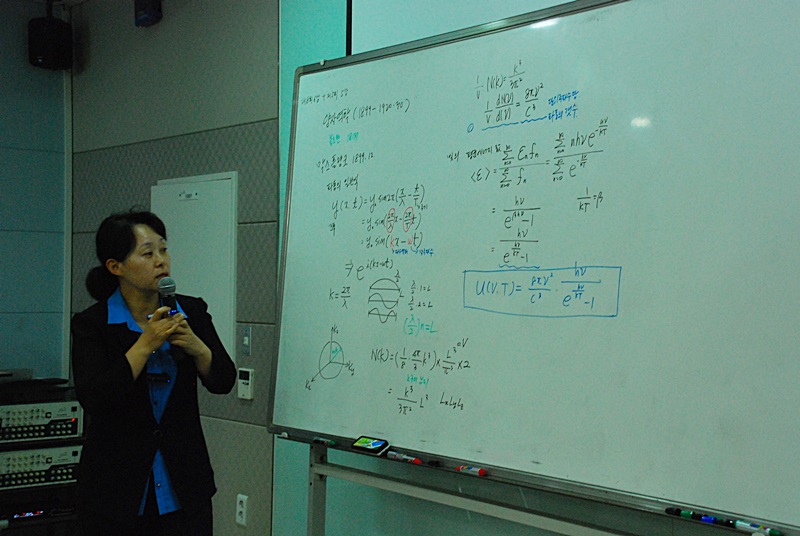 양자역학 (1899-1920.30)
1899.12
파동의 일반식
y(x,t)=y₀ sin2π(x/λ - t/T)
=y₀ sin(2π/λ x - 2π/T t)
=y₀ sin(kx-ωt)
⇒ e^i(kx-ωt)
k=2π/λ
λ/2
λ/2·1=L
λ/2·2=L
(λ/2)n=L
kz
ky
kx
N(k)=(1/8·4π/3 k³)×L³=V/π³×2
=k³/3π² L³ LxLyLz
1/V N(k)=k³/3π²
1/V dN(ν)/d(ν)=8πν²/c³
파동의 갯수
<ε>=∑εnfn/∑fn=∑nhνe^-nhν/kT/∑e^-nhν/kT
=hν/e^βhν-1
1/kT=β
=hν/e^hν/kT-1
U(ν,T)=8πν²/c³·hν/e^hν/kT-1